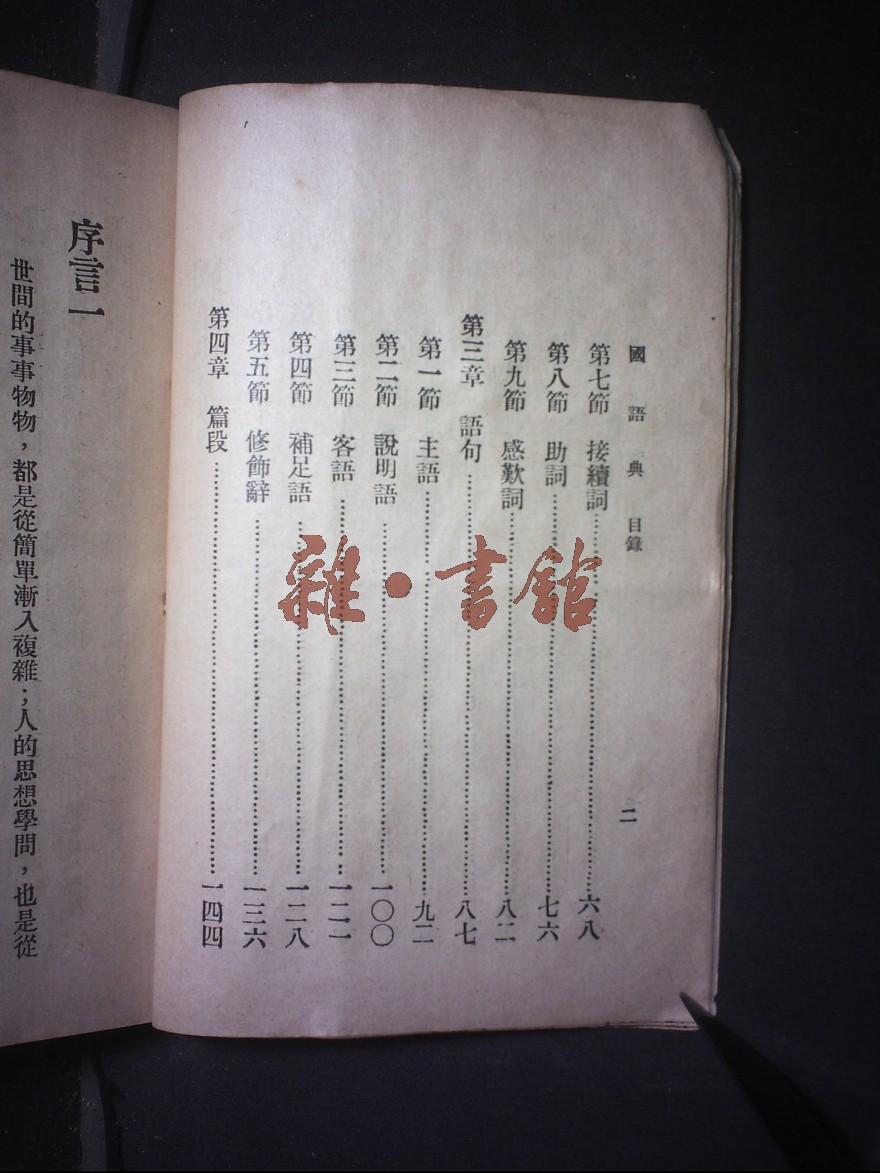 國語典 目錄
二
第七節 接續詞……六八
第八節 助詞……七六
第九節 感歎詞……八二
第三章 語句……八七
第一節 主語……九二
第二節 說明語……一〇〇
第三節 客語……一二一
第四節 補足語……一二八
第五節 修飾辭……一三六
第四章 篇段……一四四
序言一
世間的事事物物，都是從簡單漸入複雜；人的思想學問，也是從
雜·書館